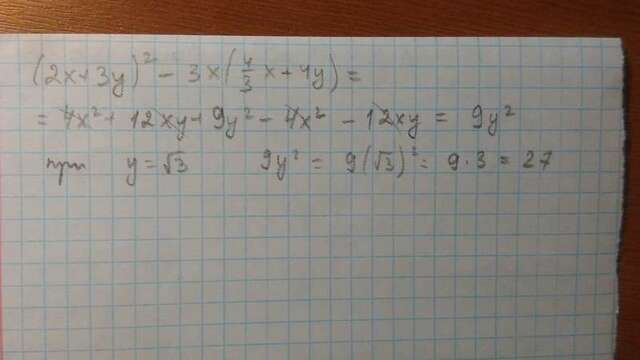 (2x+3y)² - 3x(4/3 x + 4y) =
= 4x² + 12xy + 9y² - 4x² - 12xy = 9y²
при y = √3 9y² = 9(√3)² = 9·3 = 27